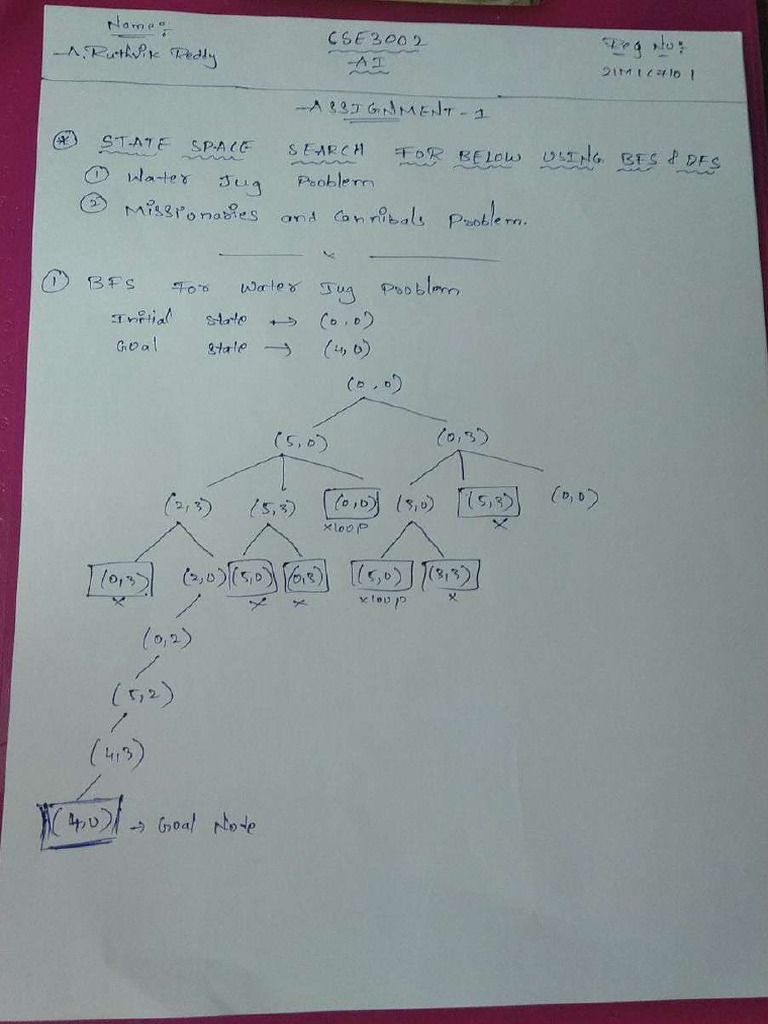 Name:
A. Ruthvik Reddy
CSE3002
AI
Reg No:
ASSIGNMENT-1
* STATE SPACE SEARCH FOR BELOW USING BFS & DFS
① Water Jug Problem
② Missionaries and Cannibals Problem.
x
① BFS For Water Jug Problem
Initial state ↔ (0,0)
Goal state → (4,0)
(0,0)
(5,0) (0,3)
(2,3) (5,3) (0,0) (3,0) (5,3) (0,0)
xloop x
(0,3) (2,0) (5,0) (0,3) (5,0) (3,3)
x x x xloop x
(0,2)
(5,2)
(4,3)
(4,0) → Goal Node